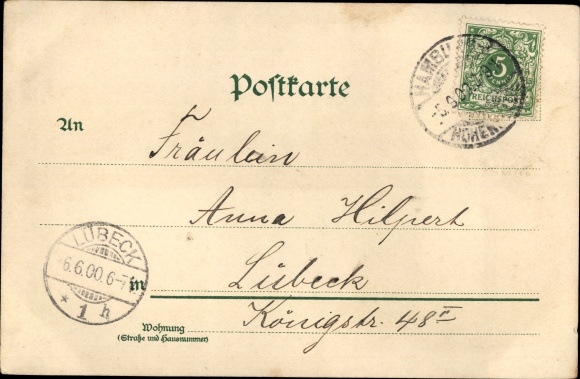 5
REICHSPOST
Postkarte
An
Fräulein
Anna Hilpert
LÜBECK
6.6.00. 6-7
* 1 h
in Lübeck
Königstr. 48 II
Wohnung
(Straße und Hausnummer)